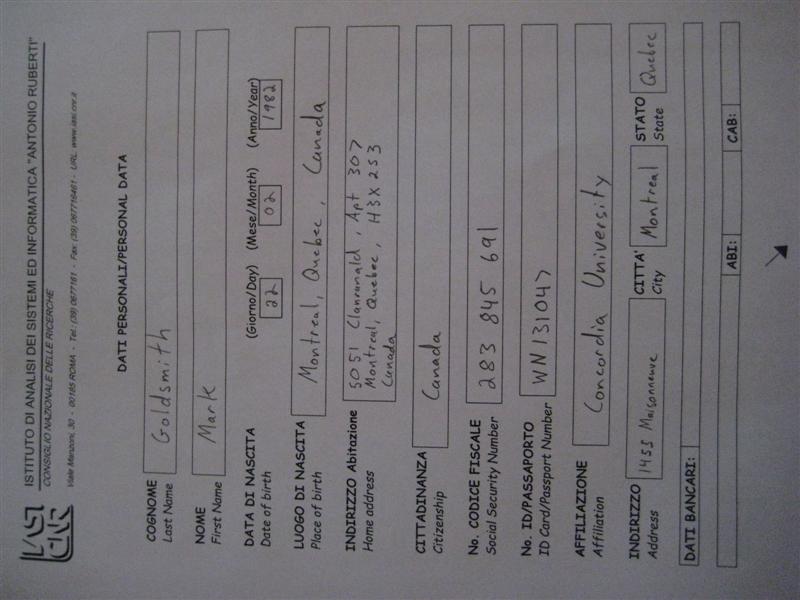 IASI
CNR
ISTITUTO DI ANALISI DEI SISTEMI ED INFORMATICA "ANTONIO RUBERTI"
CONSIGLIO NAZIONALE DELLE RICERCHE
Viale Manzoni, 30 - 00185 ROMA - Tel.: (39) 0677161 - Fax: (39) 067716461 - URL: www.iasi.cnr.it
DATI PERSONALI/PERSONAL DATA
COGNOME Goldsmith
Last Name
NOME Mark
First Name
DATA DI NASCITA (Giorno/Day) (Mese/Month) (Anno/Year)
Date of birth 22 02 1982
LUOGO DI NASCITA Montreal, Quebec, Canada
Place of birth
INDIRIZZO Abitazione 5051 Clanranald, Apt 307
Home address Montreal, Quebec, H3X 2S3
Canada
CITTADINANZA Canada
Citizenship
No. CODICE FISCALE 283 845 691
Social Security Number
No. ID/PASSAPORTO WN131047
ID Card/Passport Number
AFFILIAZIONE Concordia University
Affiliation
INDIRIZZO 1455 Maisonneuve CITTA' Montreal STATO Quebec
Address City State
DATI BANCARI:
ABI: CAB: